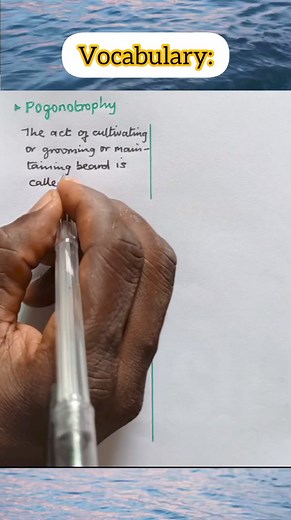 Vocabulary:
▸ Pogonotrophy
The act of cultivating
or grooming or main-
taining beard is
calle